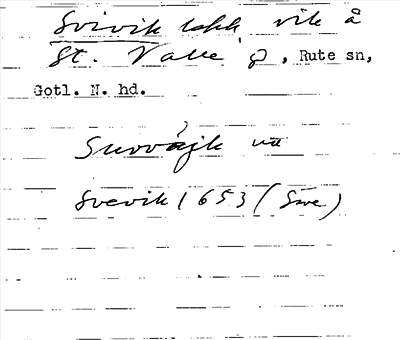 Svivik lokk, vik å
St. Valle g, Rute sn,
Gotl. N. hd.
Suvvajk uu
Svevik 1653 (Säve)